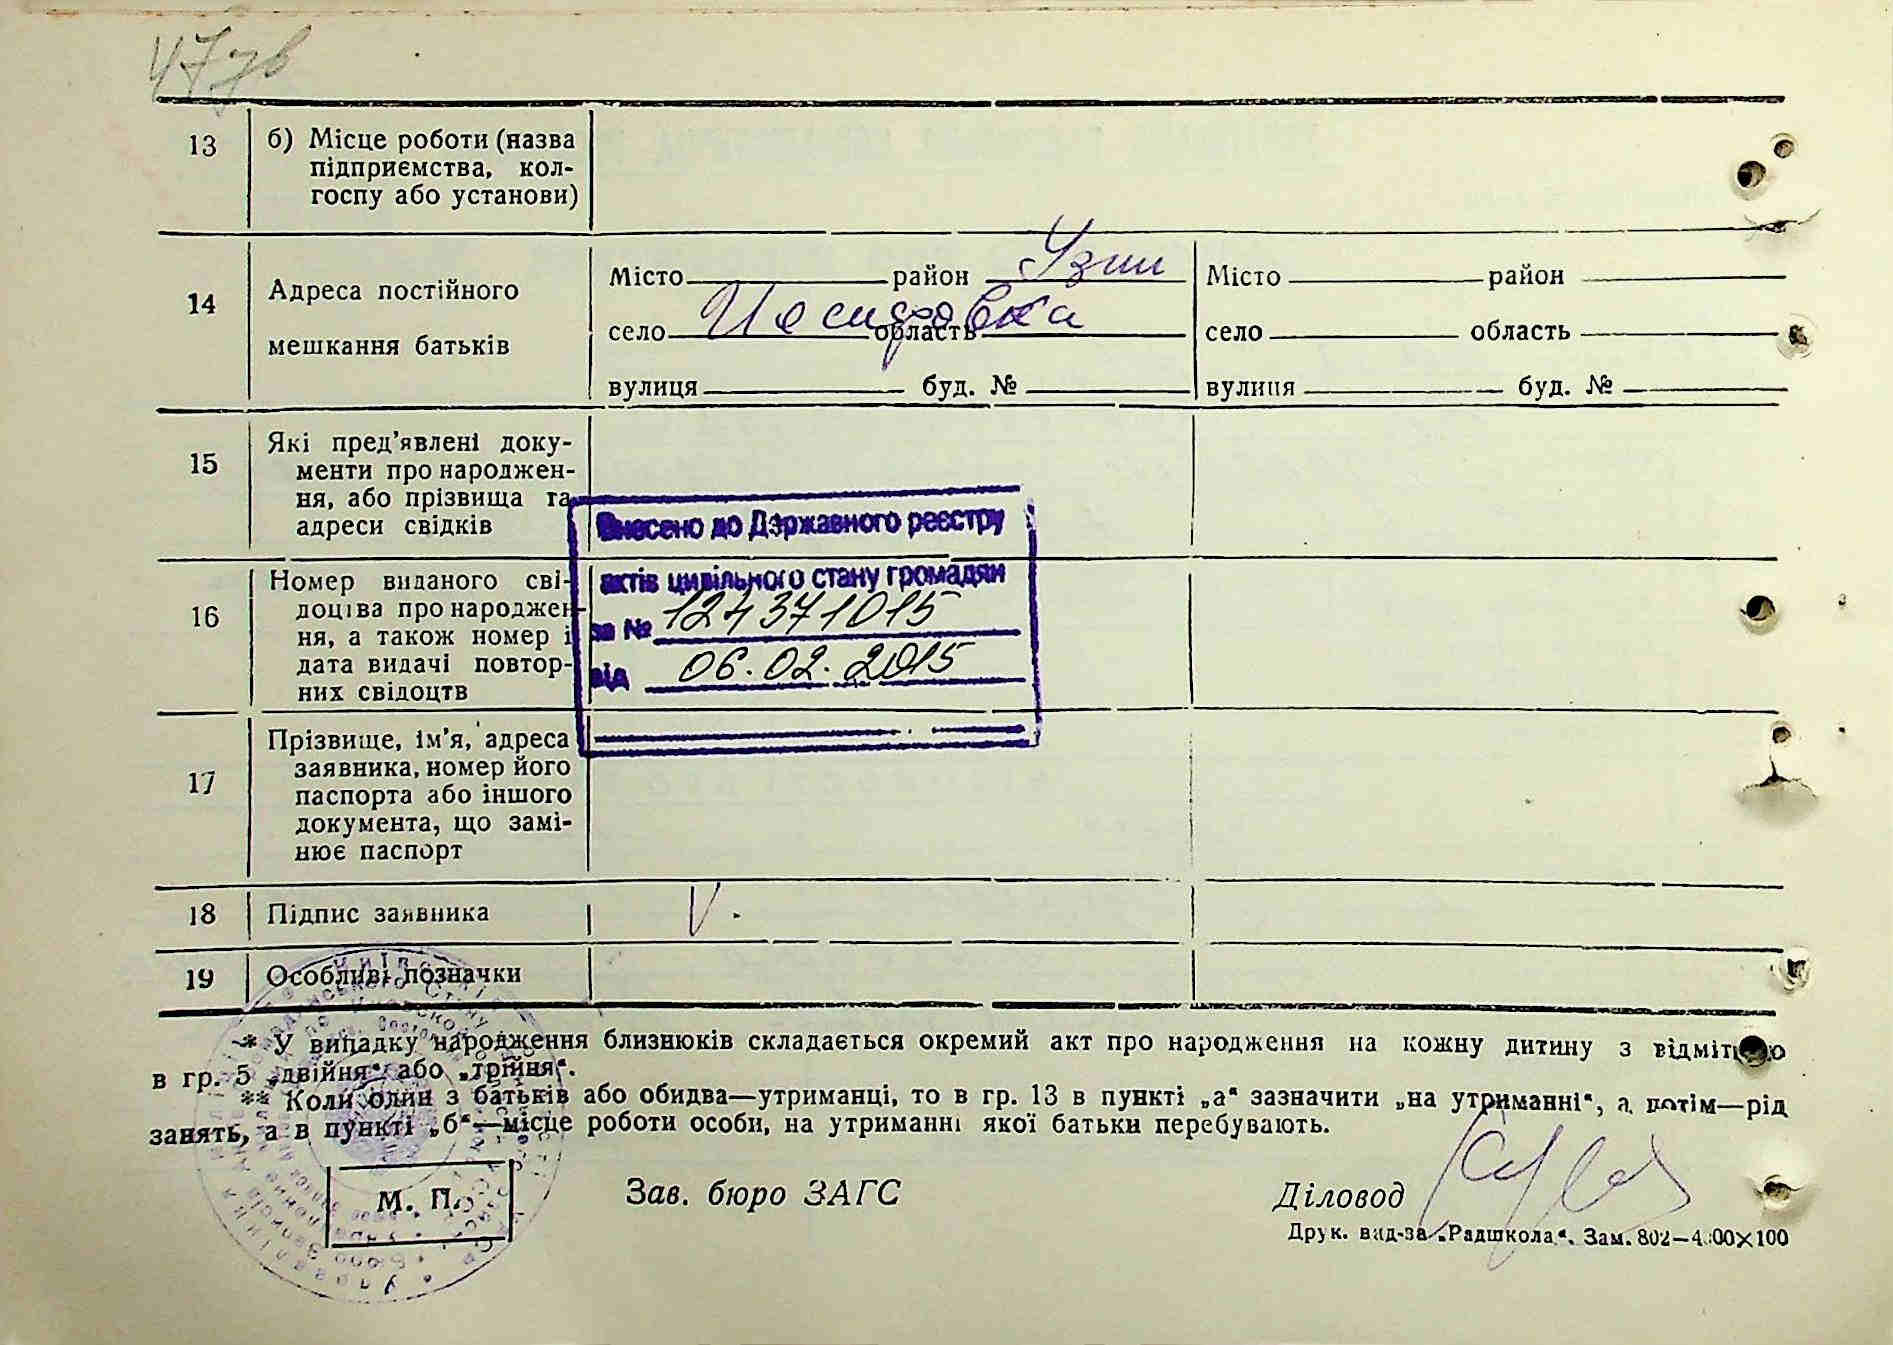 47 зв
13
б) Місце роботи (назва
підприємства, кол-
госпу або установи)
14
Адреса постійного
мешкання батьків
Місто район Узин
село область
вулиця буд. №
Місто район
село область
вулиця буд. №
15
Які пред'явлені доку-
менти про народжен-
ня, або прізвища та
адреси свідків
Внесено до Державного реєстру
актів цивільного стану громадян
за № 124371015
від 06.02.2015
16
Номер виданого сві-
доцтва про народжен-
ня, а також номер і
дата видачі повтор-
них свідоцтв
17
Прізвище, ім'я, адреса
заявника, номер його
паспорта або іншого
документа, що замі-
нює паспорт
18 Підпис заявника V.
19 Особливі позначки
* У випадку народження близнюків складається окремий акт про народження на кожну дитину з відміткою
в гр. 5 „двійня“ або „трійня“.
** Коли один з батьків або обидва—утриманці, то в гр. 13 в пункті „а“ зазначити „на утриманні“, а потім—рід
занять, а в пункті „б“—місце роботи особи, на утриманні якої батьки перебувають.
М. П.
Зав. бюро ЗАГС
Діловод
Друк. вид-за „Радшкола“. Зам. 802—4.00×100